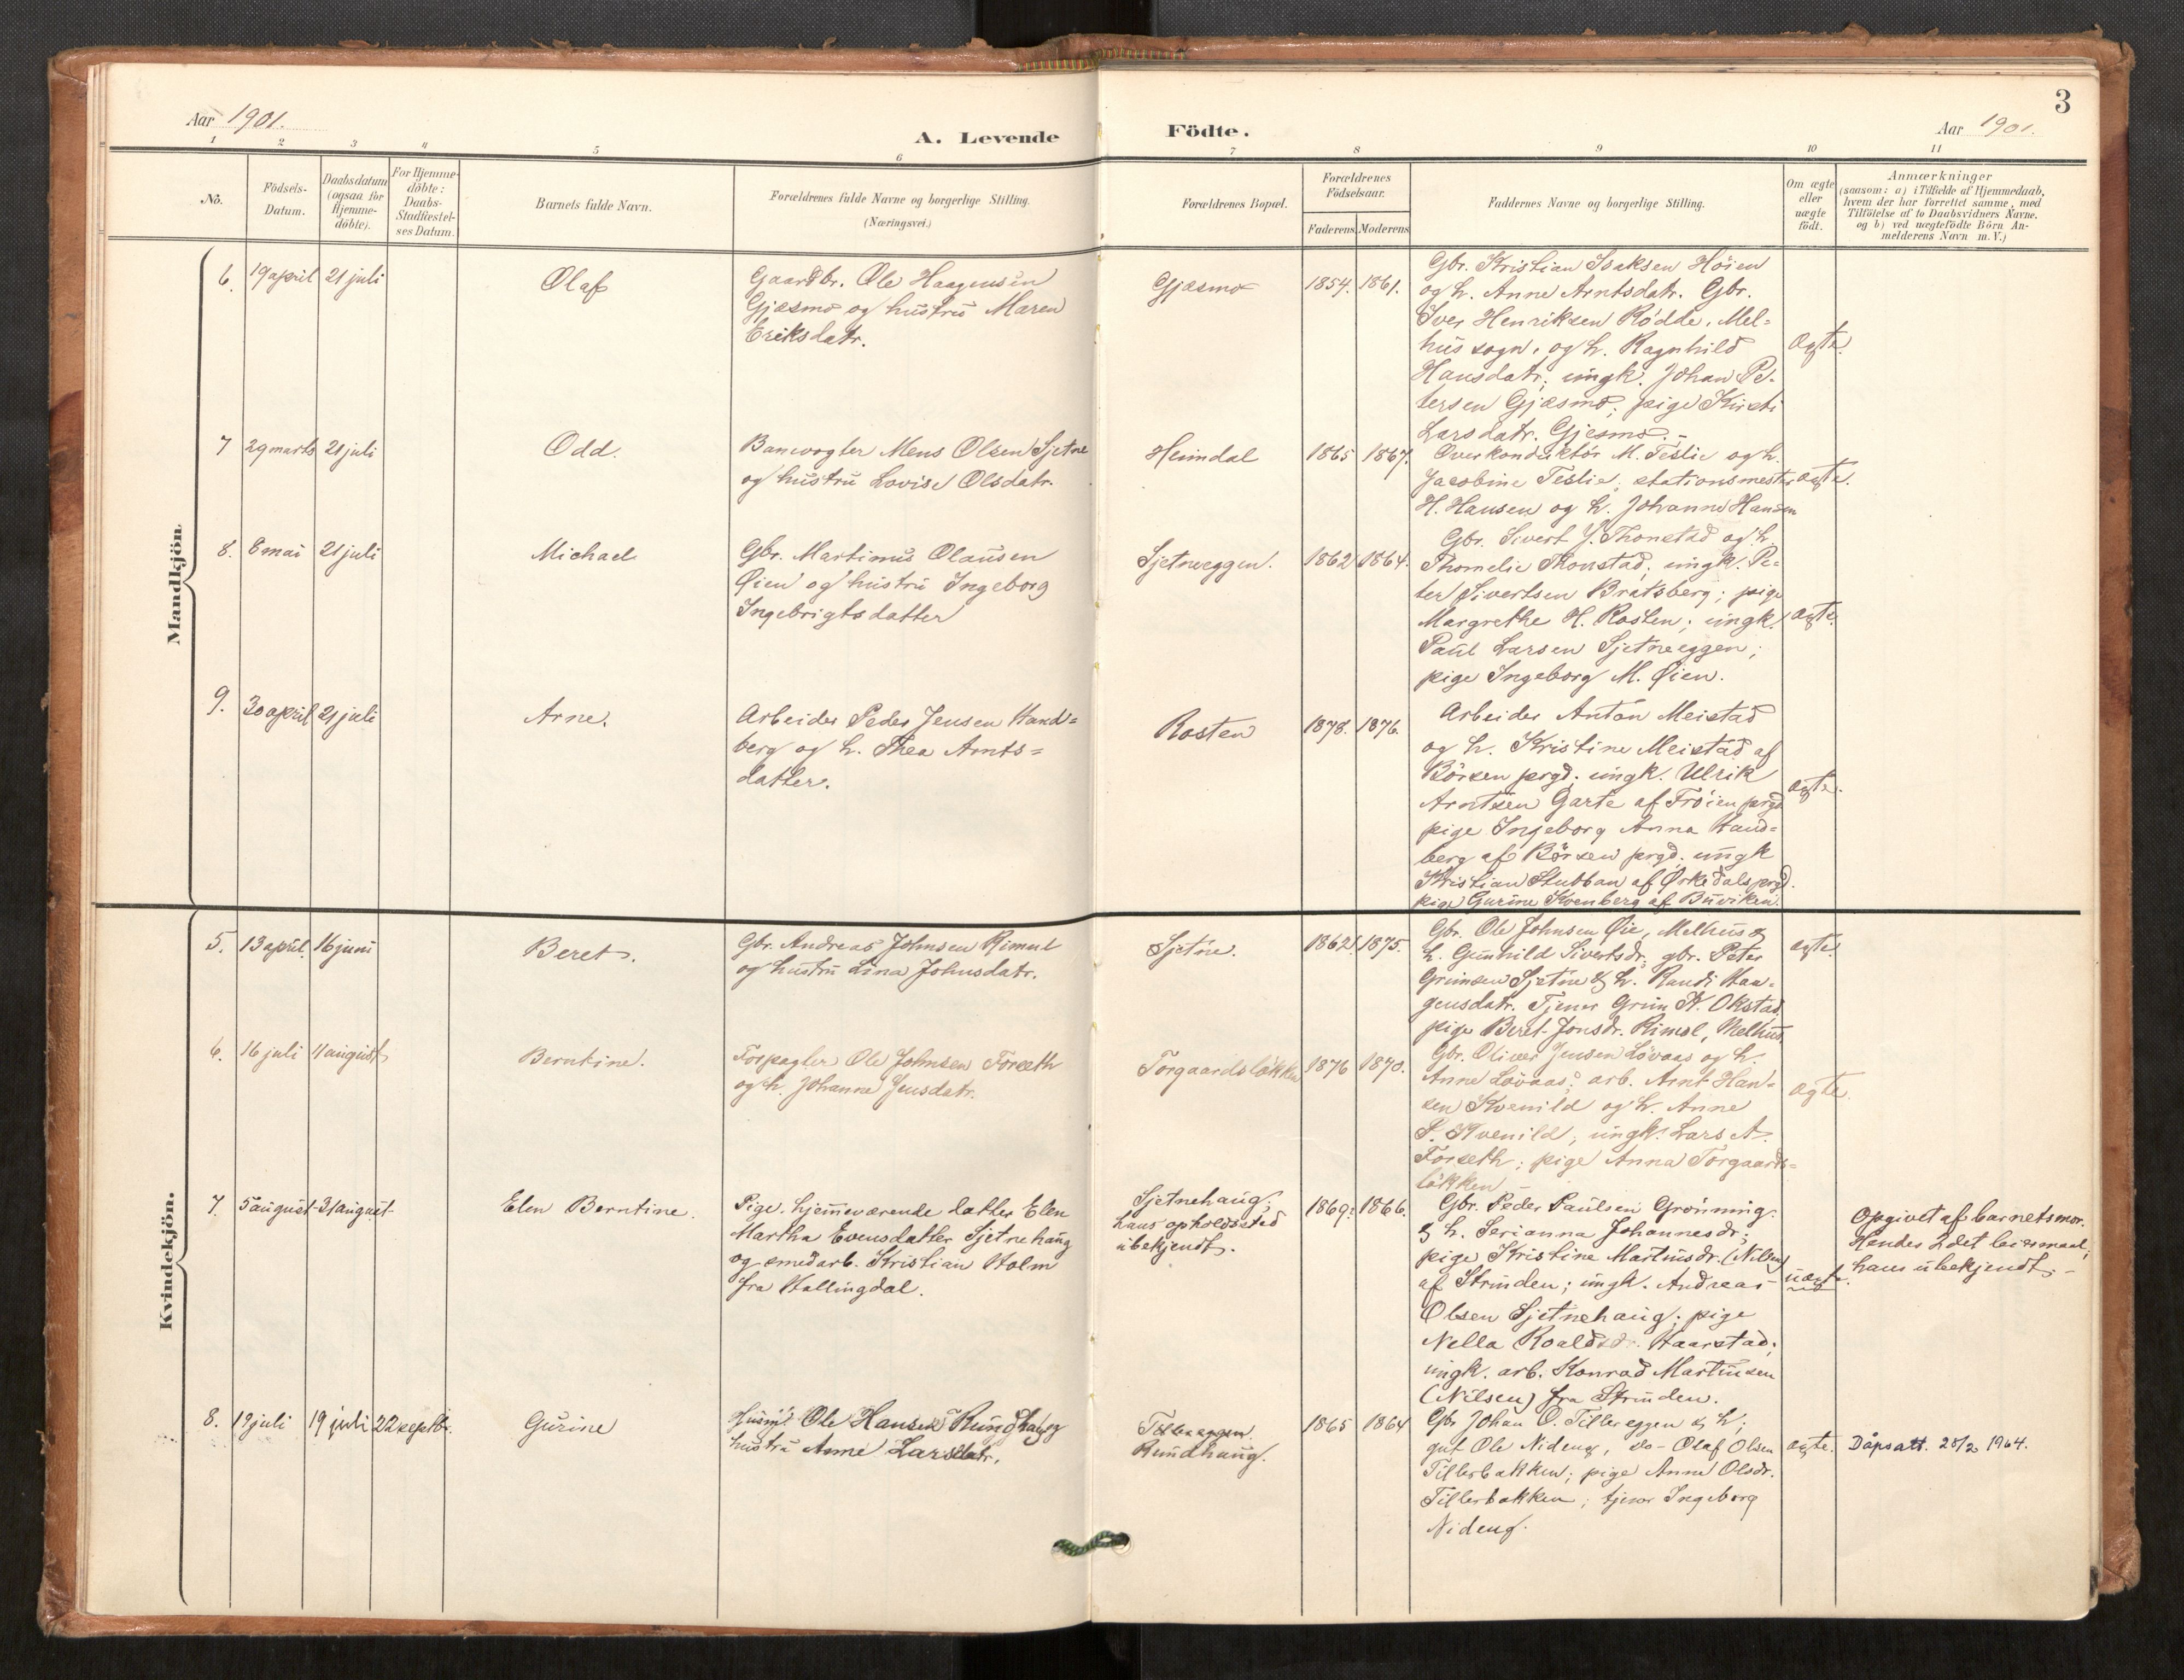 3
Aar 1901.
A. Levende Födte.
Aar 1901.
1 2 3 4 5 6 7 8 9 10 11
No.
Födsels-
Datum.
Daabsdatum
(ogsaa for
Hjemme-
döbte).
For Hjemme-
döbte:
Daabs-
Stadfestel-
ses Datum.
Barnets fulde Navn.
Forældrenes fulde Navne og borgerlige Stilling.
(Næringsvei.)
Forældrenes Bopæl.
Forældrenes
Födselsaar.
Faderens Moderens
Faddernes Navne og borgerlige Stilling.
Om ægte
eller
uægte
födt.
Anmærkninger
(saasom: a) i Tilfælde af Hjemmedaab,
hvem der har forrettet samme, med
Tilföielse af to Daabsvidners Navne.
og b) ved uægtefödte Börn An-
melderens Navn m.V.)
Mandkjön
6. 19 april 21 juli
Olaf
Gaardbr. Ole Haagensen
Gjæsmo og hustru Maren
Eriksdatr.
Gjæsmo
1854. 1861.
Gbr. Kristian Isaksen Höien
og h. Anne Arntsdatr. Gbr.
Iver Henriksen Rödde, Mel=
hus sogn, og h. Ragnhild
Hansdatr; ungk. Johan Pe-
tersen Gjæsmo; pige Kirsti
Larsdatr. Gjesmo.-
ægte.
7 29 marts 21 juli
Odd.
Banevogter Mens Olsen Sjetne
og hustru Lovise Olsdatr.
Heimdal
1865 1867.
Overkonduktör M. Teslie og h.
Jacobine Teslie, stationsmester
H. Hansen og h. Johanne Hansen
ægte.
8. 8 mai 21 juli
Michael
Gbr. Martinus Olausen
Øien og hustru Ingeborg
Ingebrigtsdatter
Sjetneeggen.
1862 1864.
Gbr. Sivert J. Thonstad og h.
Thomelie Thonstad; ungk. Pe-
ter Sivertsen Bratsberg; pige
Margrethe H. Rosten; ungk.
Paul Larsen Sjetneeggen;
pige Ingeborg M. Øien.
ægte.
9. 30 april 21 juli
Arne.
Arbeider Peder Jensen Hand=
berg og h. Thea Arnts=
datter.
Rosten
1878. 1876.
Arbeider Anton Meistad
og h. Kristine Meistad af
Börsen prgd. ungk. Ulrik
Arntsen Garte af Fröien prgd
pige Ingeborg Anna Hand=
berg af Börsen prgd; ungk
Kristian Stubban af Ørkedals prgd.
pige Gurine Kvenberg af Buviken.
ægte.
Kvindekjön.
5. 13 april. 16 juni
Beret.
Gbr. Andreas Johnsen Rimul
og hustru Lina Johnsdatr.
Sjetne.
1862. 1875.
Gbr. Ole Johnsen Øie, Melhus &
h. Gunhild Sivertsdr; gbr. Peter
Grimsen Sjetne & h. Randi Haa-
gensdatr. Tjener Grim H. Okstad
pige Beret Jonsdr. Rimol, Melhus.
ægte.
6. 16 juli 11 august
Berntine.
Forpagter Ole Johnsen Forseth
og h. Johanne Jensdatr.
Torgaardslökken
1876 1870.
Gbr. Oliver Jensen Lövaas og h.
Anne Lövaas; arb. Arnt Han-
sen Kvenild og h. Anne
S. Kvenild; ungk. Lars A.
Forseth; pige Anna Torgaards=
lökken
ægte.
7. 5 august 31 august
Elen Berntine.
Pige hjemmeværende datter Elen
Martha Evensdatter Sjetnehaug
og smedarb. Kristian Holm
fra Hallingdal.
Sjetnehaug;
hans opholdssted
ubekjendt.
1869. 1866.
Gbr. Peder Paulsen Grönning
& h. Serianna Johannesdr;
pige Kristine Martinusdr. (Nilsen)
af Strinden; ungk. Andreas
Olsen Sjetnehaug; pige
Nella Roaldsdr. Haarstad;
ungk. arb. Konrad Martinsen
(Nilsen) fra Strinden.
uægte.
Opgivet af barnets mor.
Hendes 2det leiermaal;
hans ubekjendt.-
8. 12 juli 19 juli 22 septbr.
Gurine
Husm. Ole Hansen Rundhaug
hustru Anne Larsdatr.
Tillereggen.
Rundhaug.
1865 1864
Gbr Johan O. Tillereggen & h;
gut Ole Nideng, do- Olaf Olsen
Tillerbakken; pige Anne Olsdr.
Tillerbakken; tjener Ingeborg
Nideng.
ægte.
Dåpsatt. 28/2 1964.